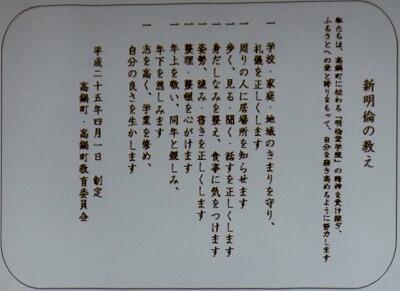 新明倫の教え
私たちは、高鍋町に伝わる「明倫堂学校」の精神を受け継ぎ、
ふるさとへの愛と誇りをもって、自分を磨き高めるように努力します
一 学校・家庭・地域のきまりを守り、
礼儀を正しくします
一 周りの人に居場所を知らせます
一 歩く、見る・聞く・話すを正しくします
一 身だしなみを整え、食事に気をつけます
一 姿勢、読み・書きを正しくします
一 整理・整頓を心がけます
一 年上を敬い、同年と親しみ、
年下を慈しみます
一 志を高く、学業を修め、
自分の良さを生かします
平成二十五年四月一日 制定
高鍋町・高鍋町教育委員会